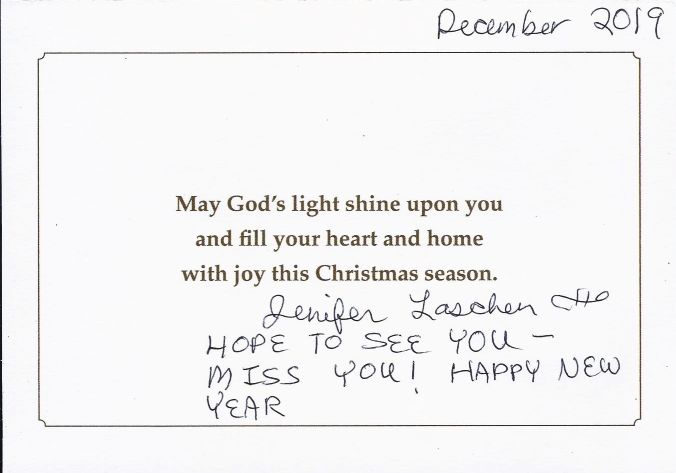 December 2019
May God's light shine upon you
and fill your heart and home
with joy this Christmas season.
Jenifer Laschen
HOPE TO SEE YOU —
MISS YOU! HAPPY NEW
YEAR